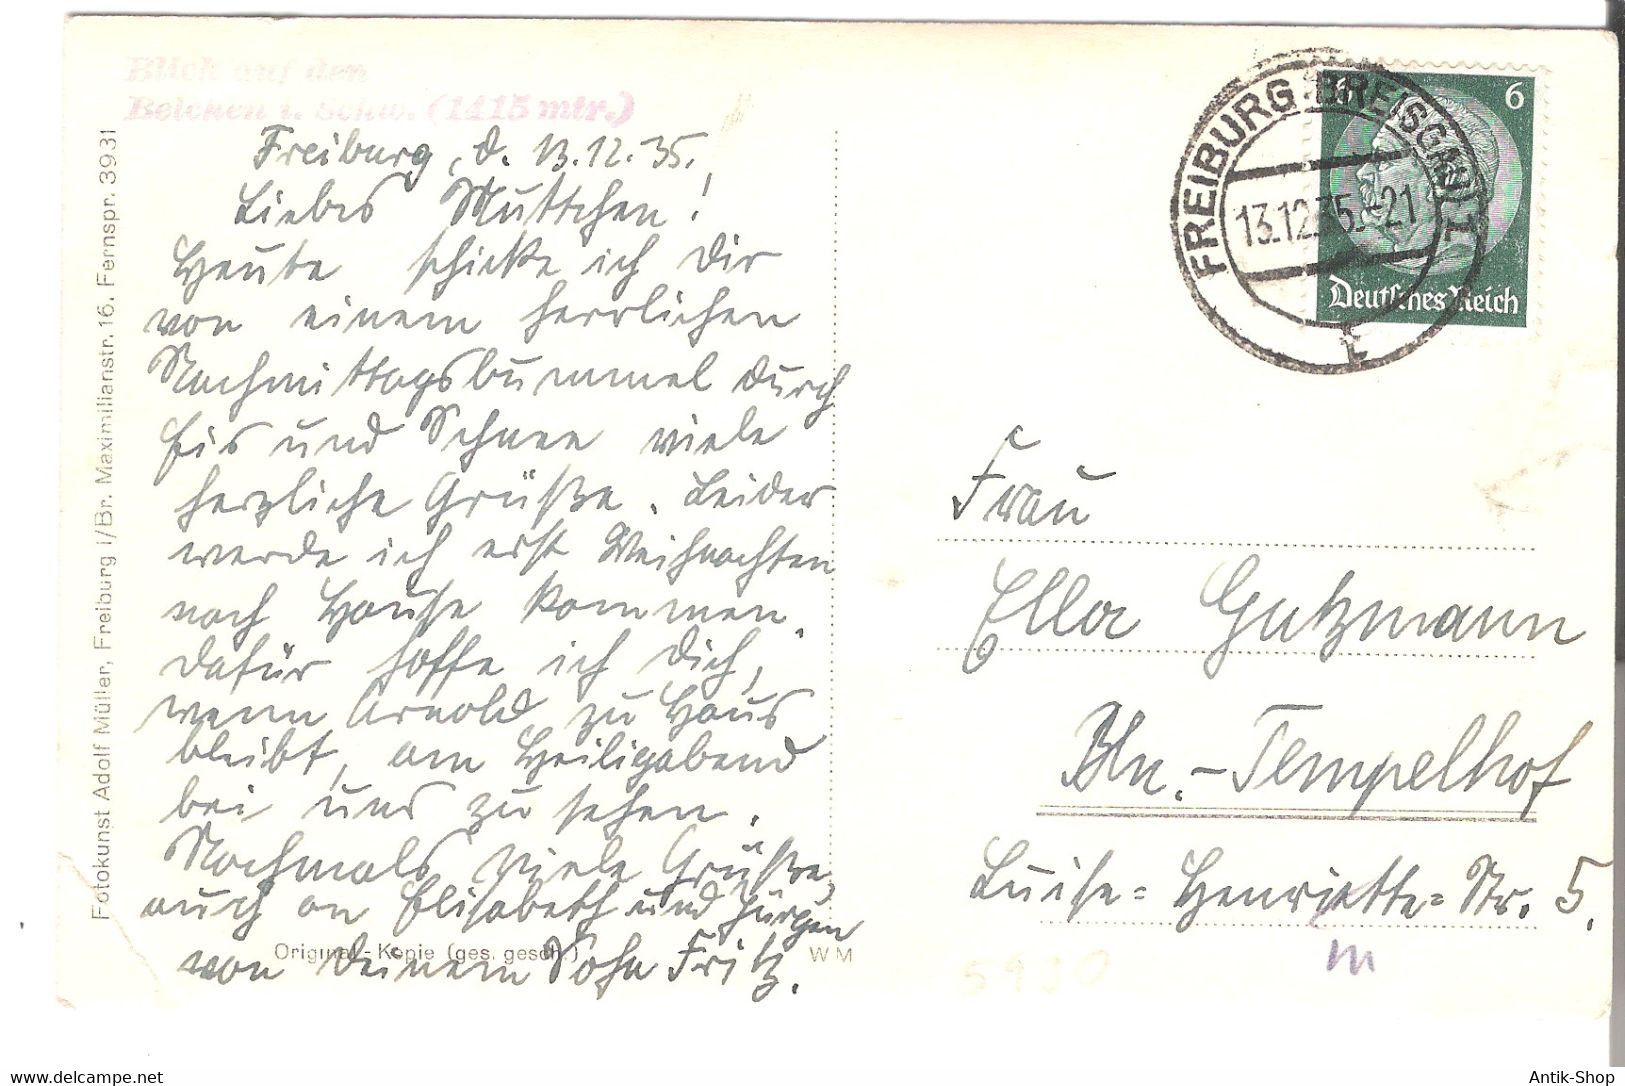 Blick auf den
Belchen i. Schw. (1415 mtr.)
Freiburg, d. 13.12.35.
Liebes Muttchen!
Heute schicke ich Dir
von einem herrlichen
Nachmittagsbummel durch
Eis und Schnee viele
herzliche Grüße. Leider
werde ich erst Weihnachten
nach Hause kommen.
Dafür hoffe ich Dich,
wenn Arnold zu Haus
bleibt, am Heiligabend
bei uns zu sehen.
Nochmals viele Grüße,
auch an Elisabeth und Jürgen
von Deinem Sohn Fritz.
Original-Kopie (ges. gesch.)
WM
Fotokunst Adolf Müller, Freiburg i/Br. Maximilianstr. 16. Fernspr. 3931
FREIBURG-BREISGAU 1
13.12.35.-21
6
Deutsches Reich
Frau
Ella Gutzmann
Bln.-Tempelhof
Luise-Henriette-Str. 5.
m
5930
Antik-Shop
www.delcampe.net